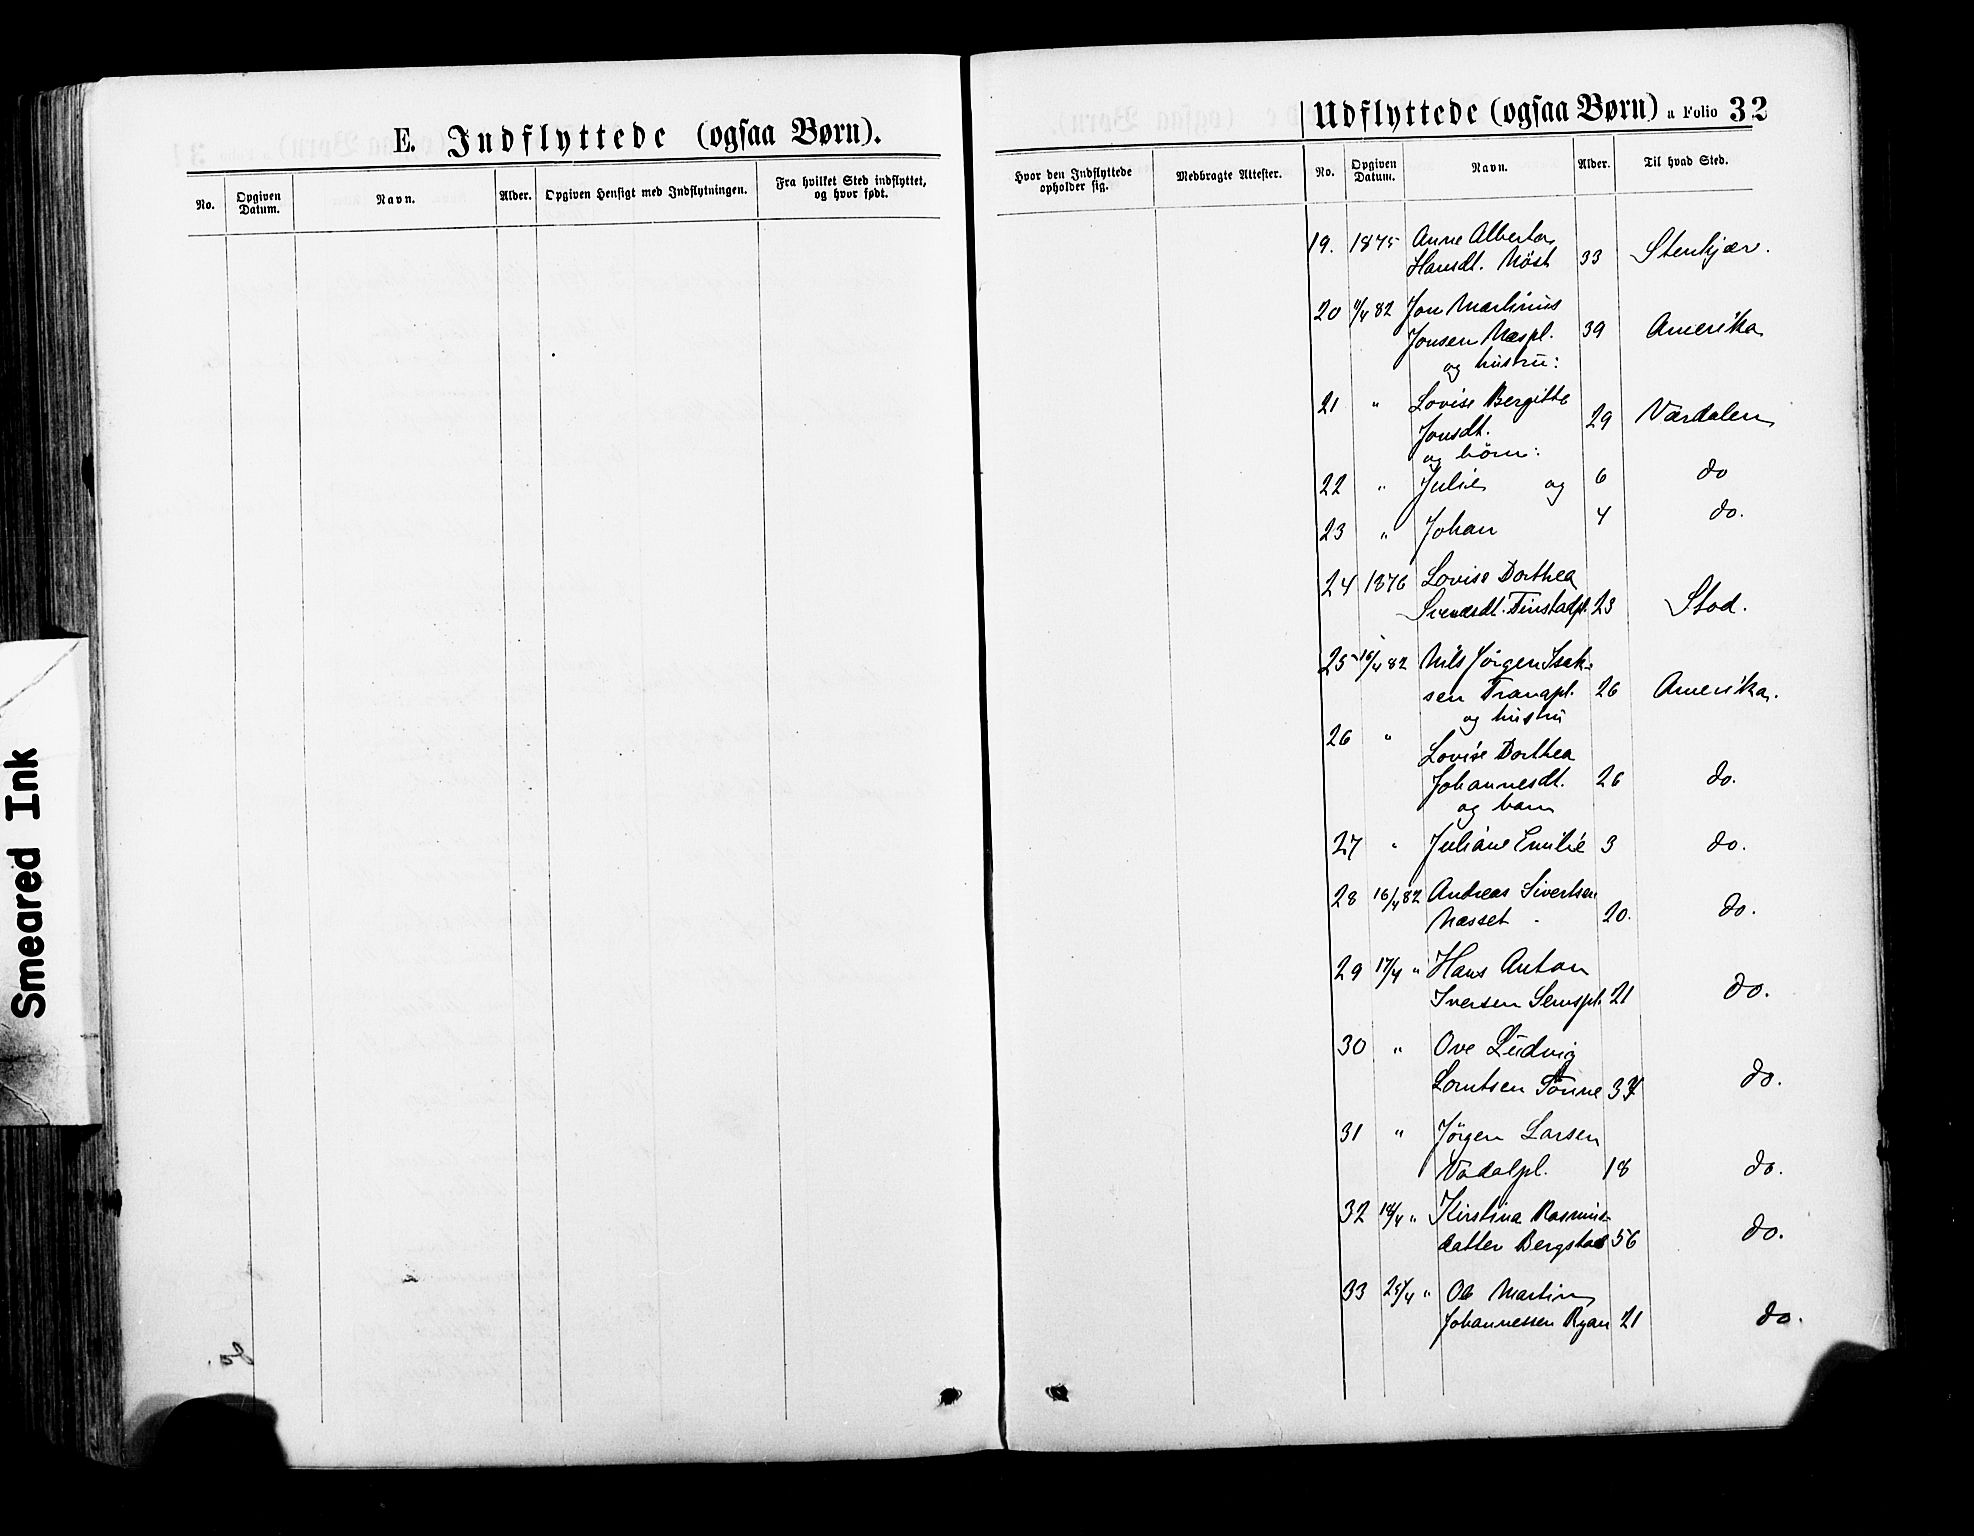 E. Indflyttede (ogsaa Børn).
No. Opgiven Datum. Navn. Alder. Opgiven Hensigt med Indflytningen. Fra hvilket Sted indflyttet, og hvor født.
Udflyttede (ogsaa Børn) a Folio 32
Hvor den Indflyttede opholder sig. Medbragte Attester. No. Opgiven Datum. Navn. Alder. Til hvad Sted.
19. 1875 Anne Alberta
Hansdt. Møst 33 Stenkjær.
20 82 Jon Martinus
Jonsen Næspl. 39 Amerika
og hustru:
21 " Lovise Bergitte
Jonsdt. 29 Værdalen
og börn:
22 " Julie og 6 do
23 " Johan 4 do.
24 1876 Lovise Dorthea
Svendsdt. Finstadpl. 23 Stod.
25 16/4 82 Nils Jörgen Isak-
sen Tranapl. 26 Amerika.
og hustru
26 " Lovise Dorthea
Johannesdt. 26 do.
og barn
27 " Juliane Emilie 3 do.
28 16/4 82 Andreas Sivertsen
Næsset 20. do.
29 17/4 " Hans Anton
Iversen Semspl. 21 do.
30 " Ove Ludvig
Lorntsen Tönne do.
31 " Jörgen Larsen
Vådalpl. 18 do.
32 18/4 " Kirstina Rasmus-
datter Bergstad 56 do.
33 25/4 " Ole Martin
Johannessen Ryan 21 do.
Smeared Ink